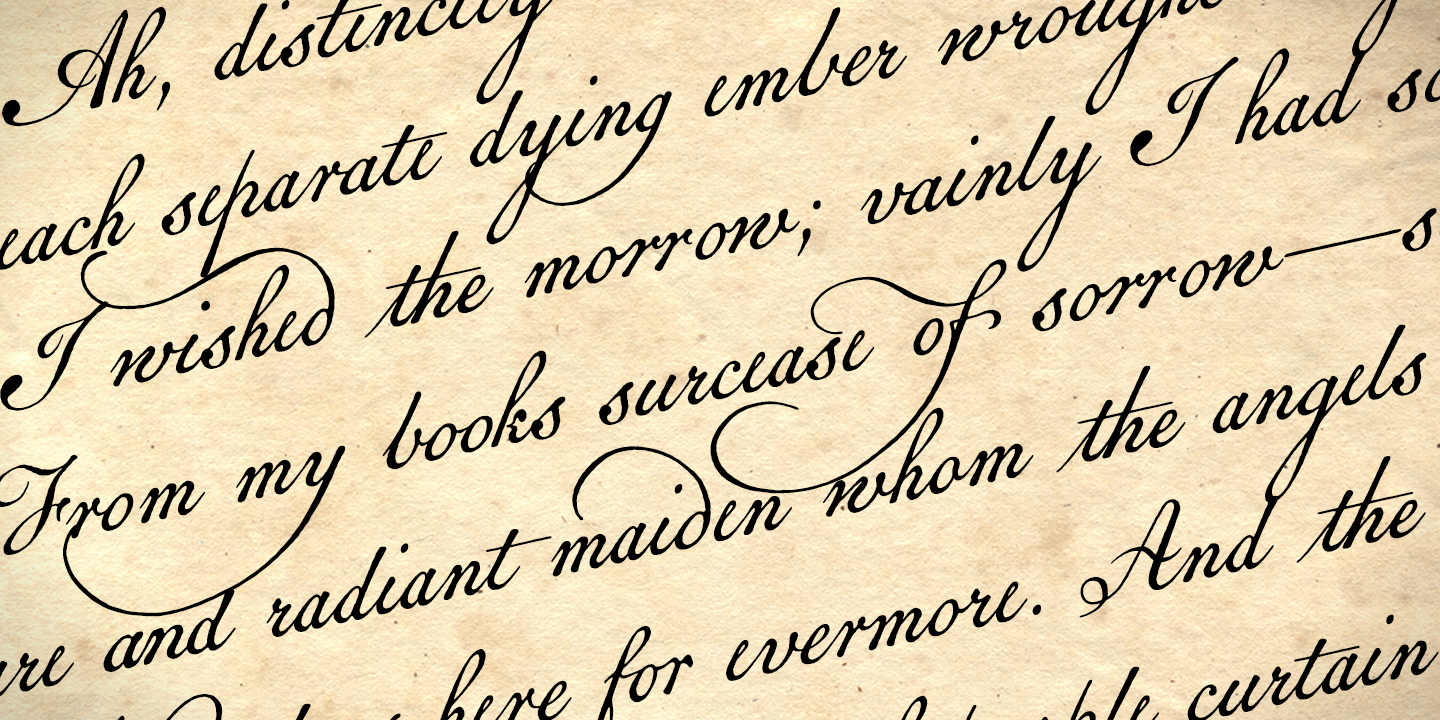 Ah, distinctly
each separate dying ember wrought
I wished the morrow; vainly I had so
From my books surcease of sorrow—s
are and radiant maiden whom the angels
here for evermore. And the
curtain